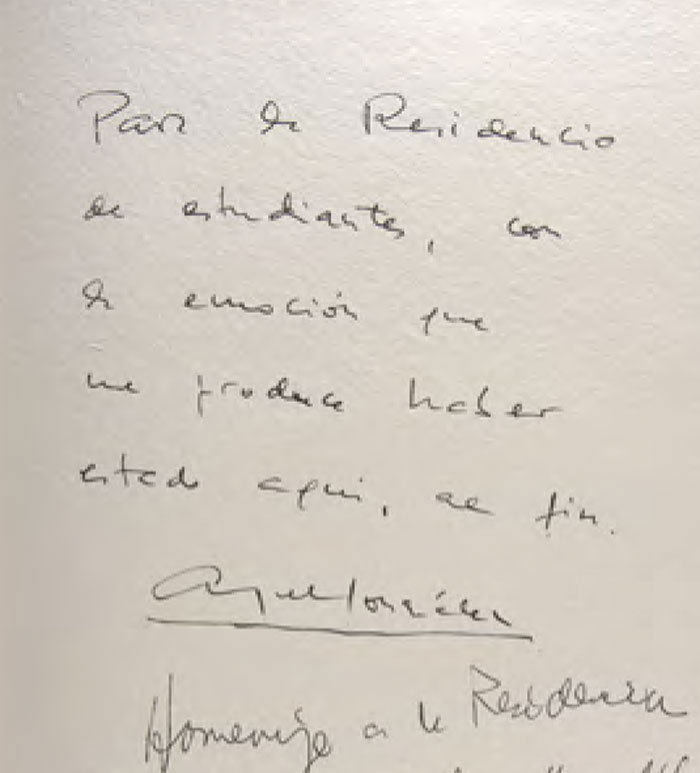 Para la Residencia
de estudiantes, con
la emoción que
me produce haber
estado aqui, al fin.
Angel González
Homenaje a la Residencia